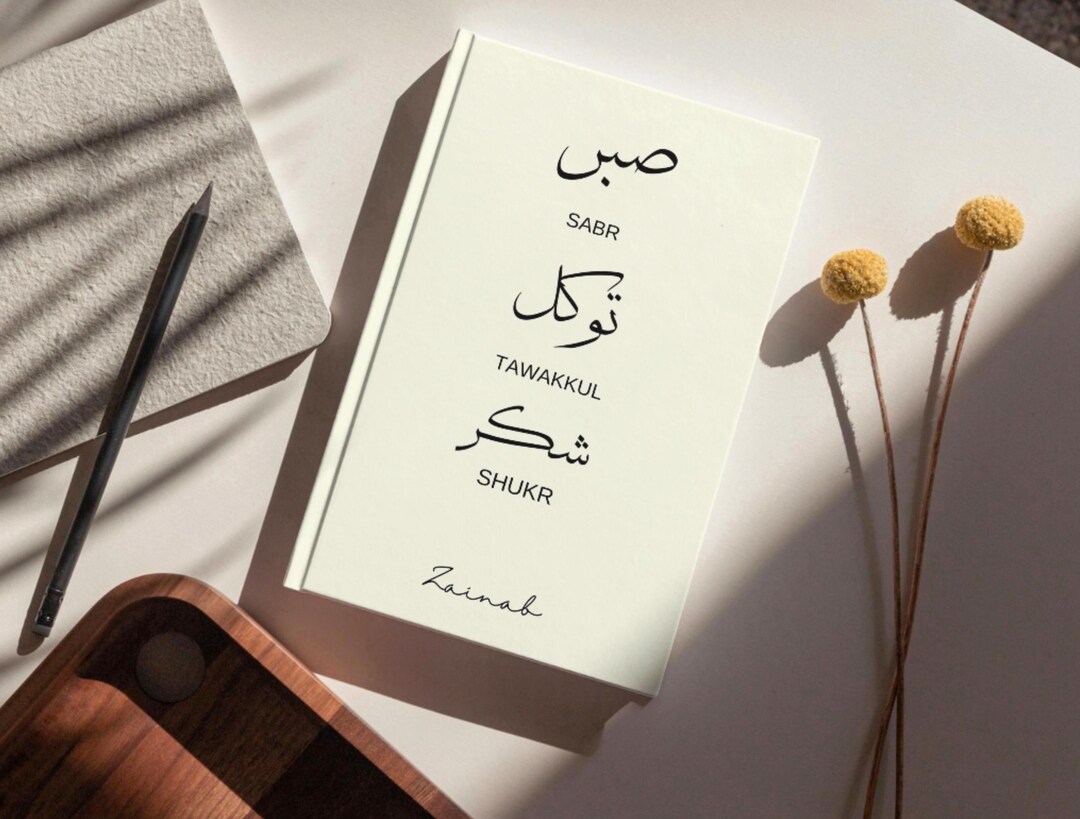 صبر
SABR
توكل
TAWAKKUL
شكر
SHUKR
Zainab